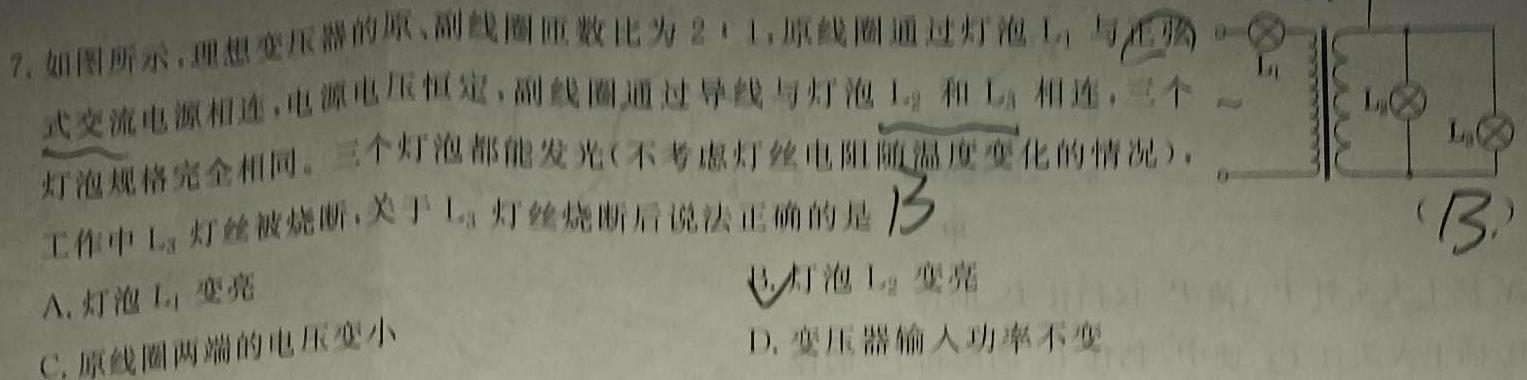 7. 如图所示,理想变压器的原、副线圈匝数比为 2:1,原线圈通过灯泡 L₁ 与正弦
式交流电源相连,电源电压恒定,副线圈通过导线与灯泡 L₂ 和 L₃ 相连,三个
灯泡规格完全相同。三个灯泡都能发光(不考虑灯丝电阻随温度变化的情况),
工作中 L₃ 灯丝被烧断,关于 L₃ 灯丝烧断后说法正确的是 B
(B.)
A. 灯泡 L₁ 变亮
B. 灯泡 L₂ 变亮
C. 原线圈两端的电压变小
D. 变压器输入功率不变
L₁
~
L₂
L₃